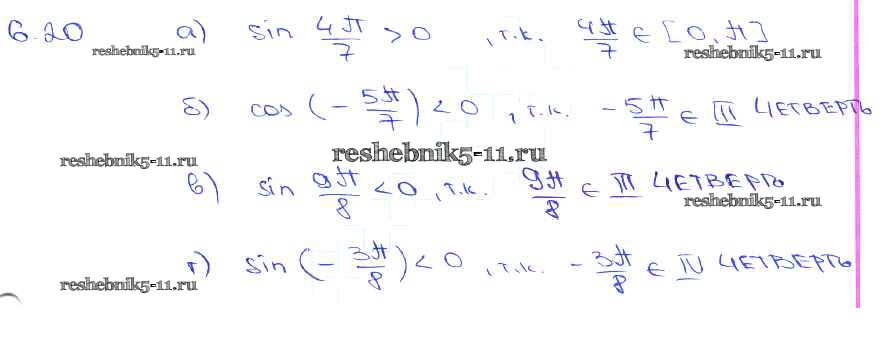 6.20 а) sin 4π/7 > 0 , т.к. 4π/7 ∈ [0, π]
reshebnik5-11.ru reshebnik5-11.ru
б) cos (- 5π/7) < 0 , т.к. - 5π/7 ∈ III ЧЕТВЕРТЬ
reshebnik5-11.ru reshebnik5-11.ru
в) sin 9π/8 < 0 , т.к. 9π/8 ∈ III ЧЕТВЕРТЬ
reshebnik5-11.ru
г) sin (- 3π/8) < 0 , т.к. - 3π/8 ∈ IV ЧЕТВЕРТЬ
reshebnik5-11.ru